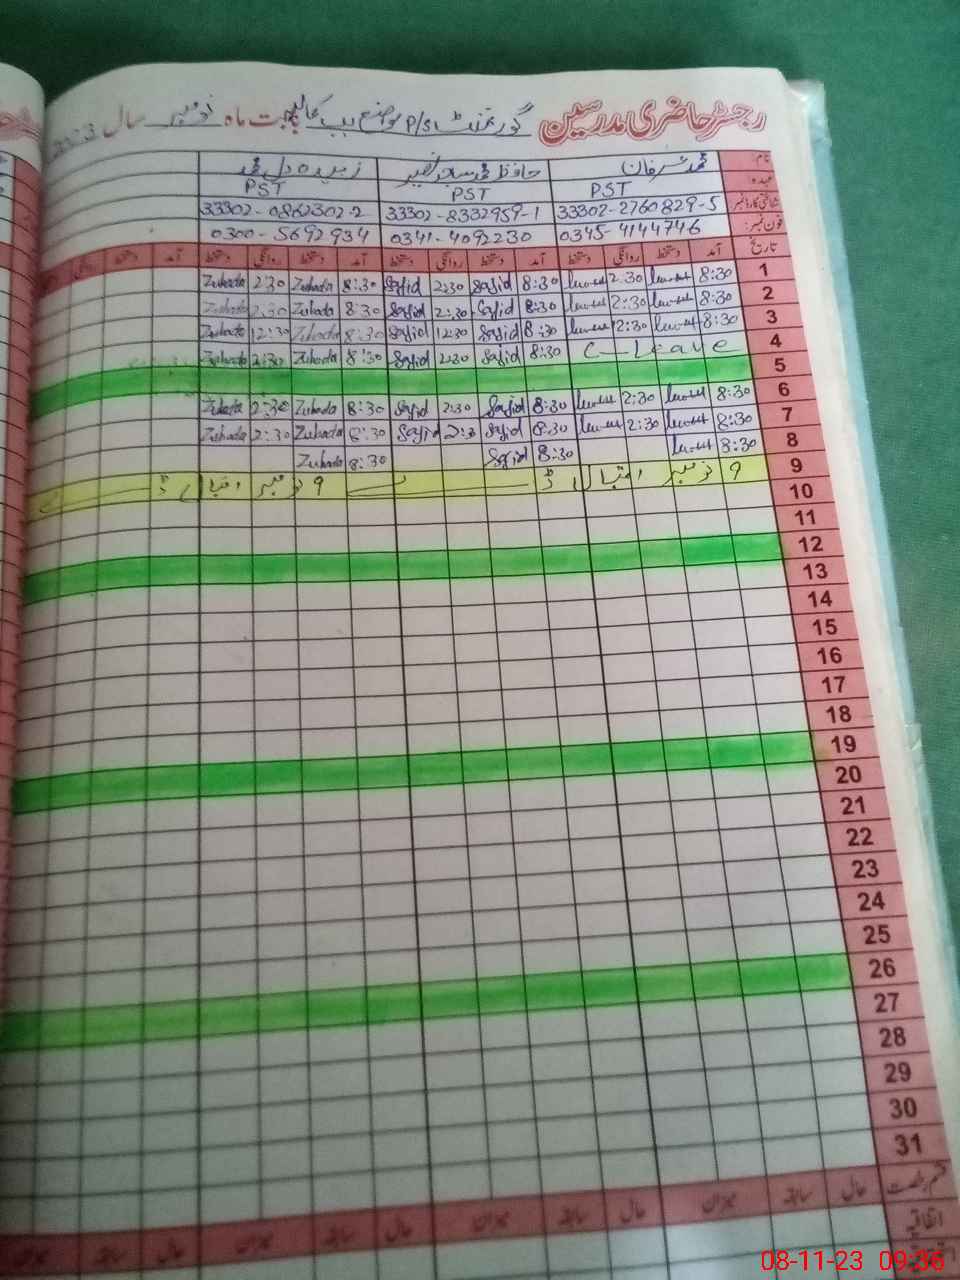 رجسٹر حاضری مدرسین گورنمنٹ P/S موضع بابت ماہ نومبر سال 2023
نام
عہدہ PST PST PST
شناختی کارڈ نمبر 33302-2760829-5 33302-8332959-1 33302-0862302-2
فون نمبر: 0345-4144746 0341-4092230 0300-5692934
تاریخ آمد دستخط روانگی دستخط آمد دستخط روانگی دستخط آمد دستخط روانگی دستخط آمد دستخط روانگی
1 8:30 2:30 8:30 Sajid 2:30 Sajid 8:30 Zubada 2:30 Zubada
2 8:30 2:30 8:30 Sajid 2:30 Sajid 8:30 Zubada 2:30 Zubada
3 8:30 12:30 8:30 Sajid 12:30 Sajid 8:30 Zubada 12:30 Zubada
4 C-Leave 8:30 Sajid 2:30 Sajid 8:30 Zubada 2:30 Zubada
5
6 8:30 2:30 8:30 Sajid 2:30 Sajid 8:30 Zubada 2:30 Zubada
7 8:30 2:30 8:30 Sajid 2:30 Sajid 8:30 Zubada 2:30 Zubada
8 8:30 8:30 Sajid 8:30 Zubada
9 ۹ نومبر اقبال ڈے ۹ نومبر اقبال ڈے
10
11
12
13
14
15
16
17
18
19
20
21
22
23
24
25
26
27
28
29
30
31
قسم رخصت حال سابقہ میزان حال سابقہ میزان حال سابقہ میزان حال سابقہ میزان
اتفاقیہ
08-11-23 09:36